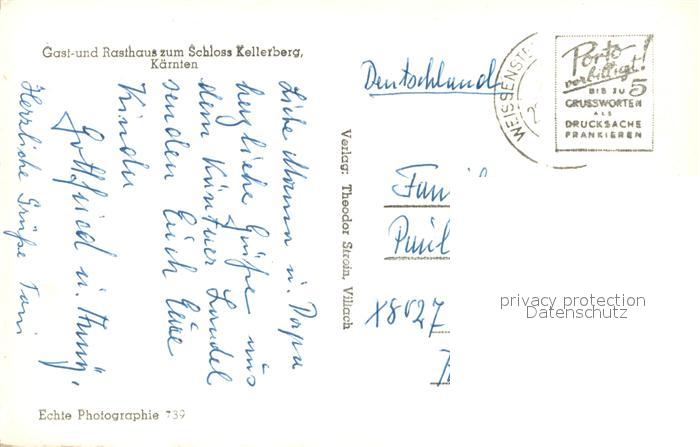 Gast-und Rasthaus zum Schloss Kellerberg,
Kärnten
Liebe Mama u. Papa
herzliche Grüße aus
dem Kärntner Landel
senden Euch Eure
Kinder
Gottfried u.
Herzliche Grüße Toni
Echte Photographie 739
Verlag: Theodor Strein, Villach
Deutschland
WEISSENST
2
Porto
verbilligt!
BIS ZU 5
GRUSSWORTEN
ALS
DRUCKSACHE
FRANKIEREN
Fam
Paul
X8027
privacy protection
Datenschutz